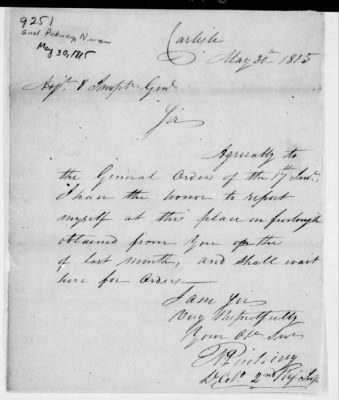 9251
Carlisle
May 30, 1815
May 30th 1815
Adjt & Inspr Genl
Sir
Agreeably to
the General Orders of the 17th Inst.
I have the honor to report
myself at this place on furlough
obtained from You on the
of last month, and shall wait
here for Orders
I am Sir
Very Respectfully
Your Obt Servt
N Pinkney
Lt Col. 2nd Rifle